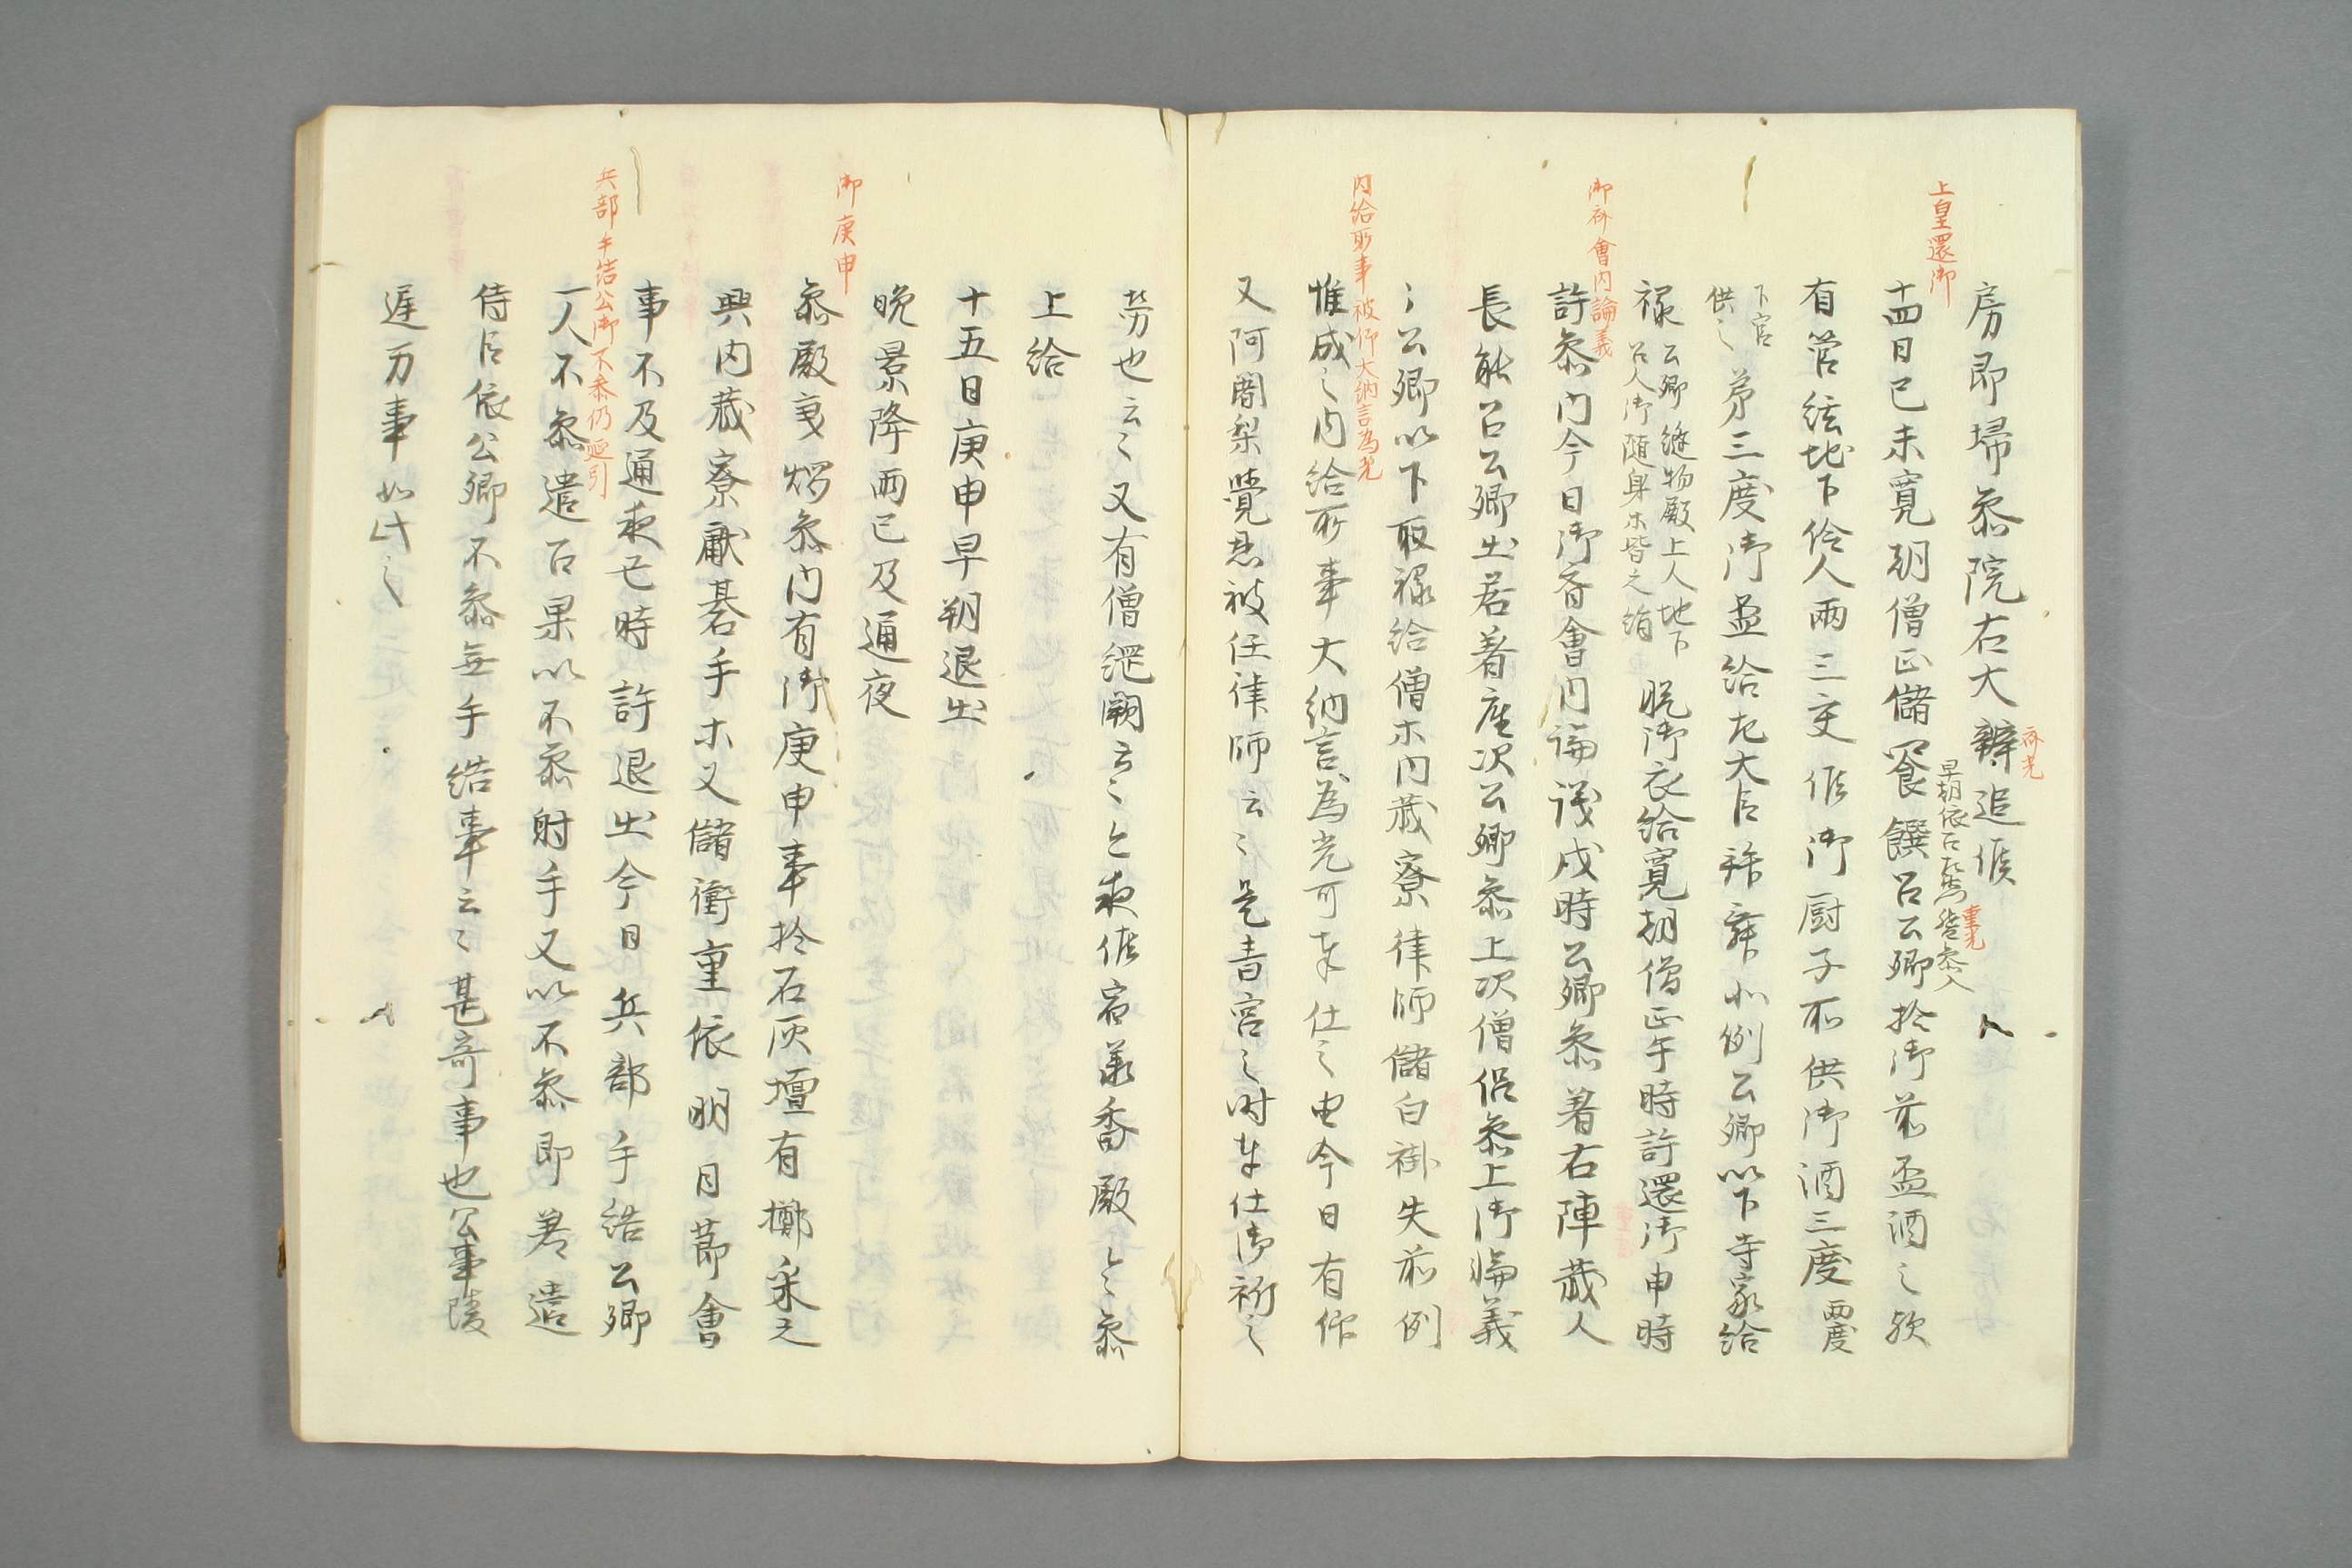 上皇還御
房即帰参院右大辨追候
齊光
早朝依召左馬權参入
十四日己未寛朝僧正儲饗饌召公卿於御前盃酒之後
有管絃地下伶人両三交候御厨子所供御酒三度両度
下官供之第三度御盃給左大臣拝舞如例公卿以下寺家給
禄公卿縫物殿上人地下
召人御随身等皆之絹
脱御衣給寛朝僧正午時許還御申時
御斎會内論義
許参内今日御斎會内論議戌時公卿参着右陣蔵人
長能召公卿出居着座次公卿参上次僧侶参上御論義
了公卿以下取禄給僧等内蔵寮律師儲白褂失前例
内給所事被仰大納言為光
惟成之内給所事大納言為光可奉仕之由今日有仰
又阿闍梨覺忠被任律師云々是青宮之時奉仕御祈之
労也云々又有僧綱闕云々今夜候宿承香殿今参
上給
十五日庚申早朝退出
晩景降雨已及通夜
御庚申
参殿更燭参内有御庚申事於石灰壇有擲采之
興内蔵寮献碁手等又儲衝重依明日節會
事不及通夜亡時許退出今日兵部手結公卿
兵部手結公卿不参仍延引
一人不参遣召果以不参射手又以不参即差遣
侍臣依公卿不参無手結事云々甚奇事也公事陵
遅万事如此之